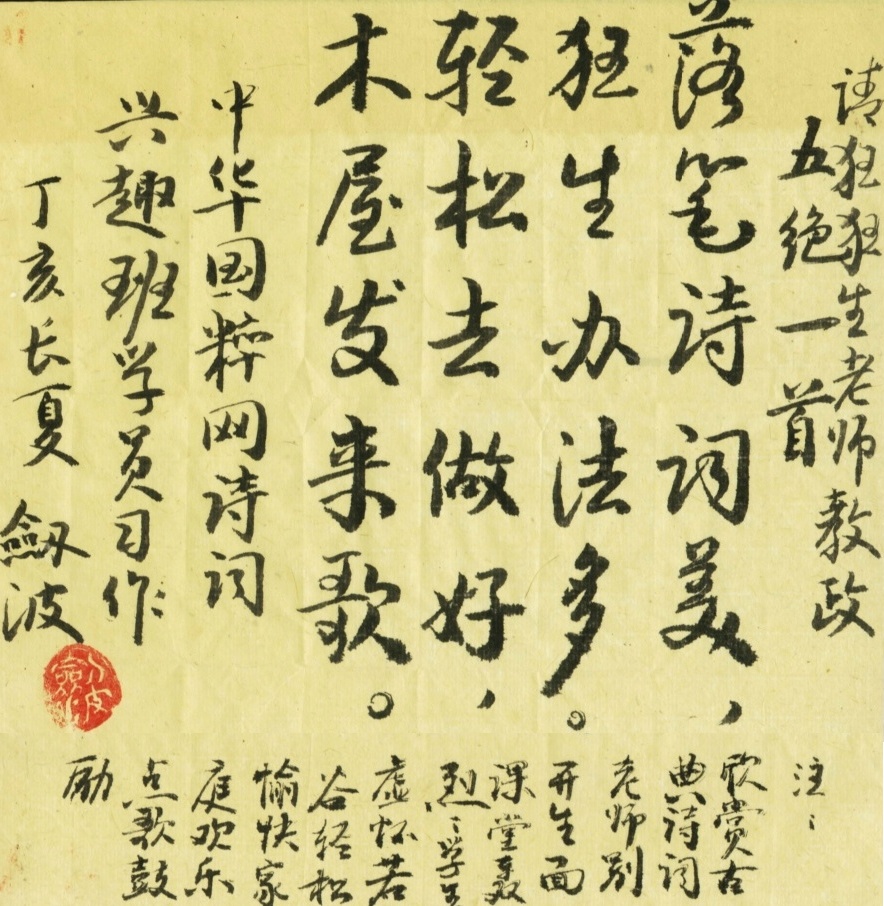 请狂狂生老师教政
五绝一首
落笔诗词美，
狂生办法多。
轻松去做好，
木屋发来歌。
中华国粹网诗词
兴趣班学员习作
丁亥长夏 劔波
注：
欣赏古
典诗词
老师别
开生面
课堂轰
烈〻学生
虚怀若
谷轻松
愉快家
庭欢乐
点歌鼓
励